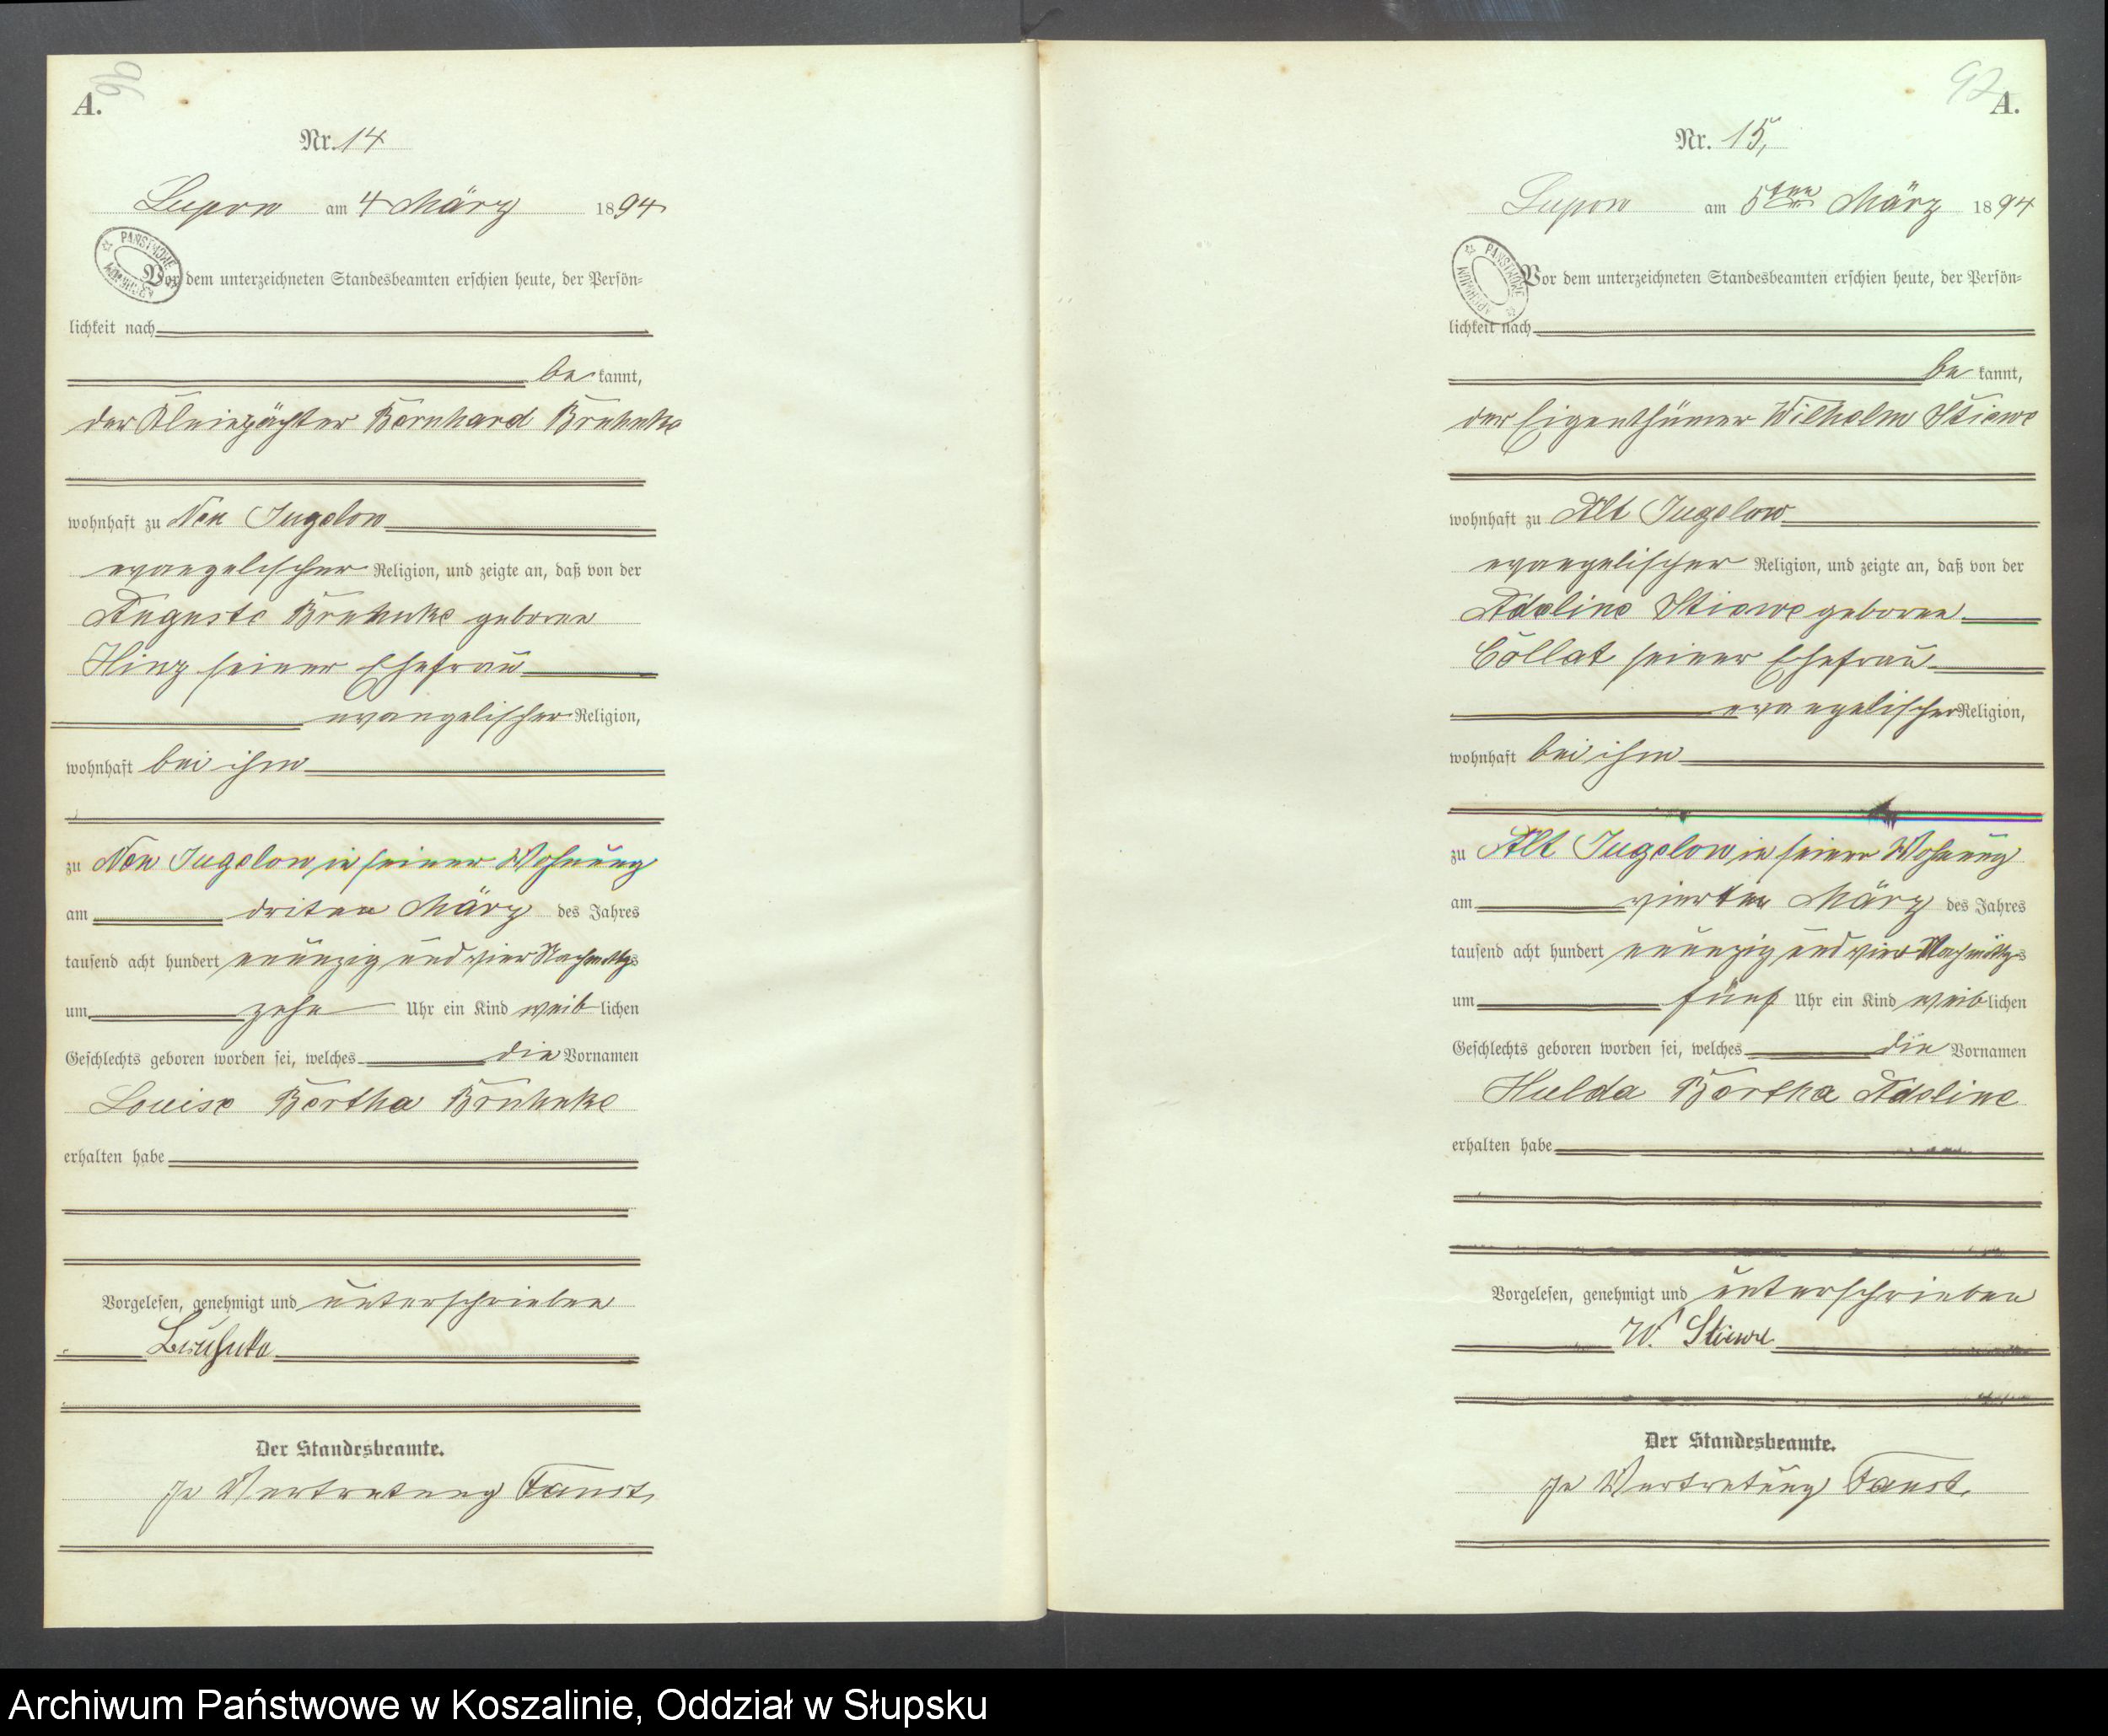 96
A.
Nr. 14
Lupow am 4 März 1894
PAŃSTWOWE ARCHIWUM
Vor dem unterzeichneten Standesbeamten erschien heute, der Persön-
lichkeit nach
be kannt,
der Kleinpächter Bernhard Bruhnke
wohnhaft zu Neu Jugelow
evangelischer Religion, und zeigte an, daß von der
Auguste Bruhnke geboren
Hinz seiner Ehefrau
evangelischer Religion,
wohnhaft bei ihm
zu Neu Jugelow in seiner Wohnung
am driten März des Jahres
tausend acht hundert neunzig und vier Nachmittgs
um zehn Uhr ein Kind weib lichen
Geschlechts geboren worden sei, welches die Vornamen
Louise Bertha Bruhnke
erhalten habe
Vorgelesen, genehmigt und unterschrieben
Der Standesbeamte.
In Vertretung Faust,
92
A.
Nr. 15,
Lupow am 5ten März 1894
PAŃSTWOWE ARCHIWUM
Vor dem unterzeichneten Standesbeamten erschien heute, der Persön-
lichkeit nach
be kannt,
der Eigenthümer Wilhelm Stiewe
wohnhaft zu Alt Jugelow
evangelischer Religion, und zeigte an, daß von der
Adeline Stiewe geboren
Cöllat seiner Ehefrau
evangelischer Religion,
wohnhaft bei ihm
zu Alt Jugelow in seiner Wohnung
am vierten März des Jahres
tausend acht hundert neunzig und vier Nachmittgs
um fünf Uhr ein Kind weib lichen
Geschlechts geboren worden sei, welches die Vornamen
Hulda Bertha Adeline
erhalten habe
Vorgelesen, genehmigt und unterschrieben
W. Stiewe
Der Standesbeamte.
In Vertretung Faust.
Archiwum Państwowe w Koszalinie, Oddział w Słupsku